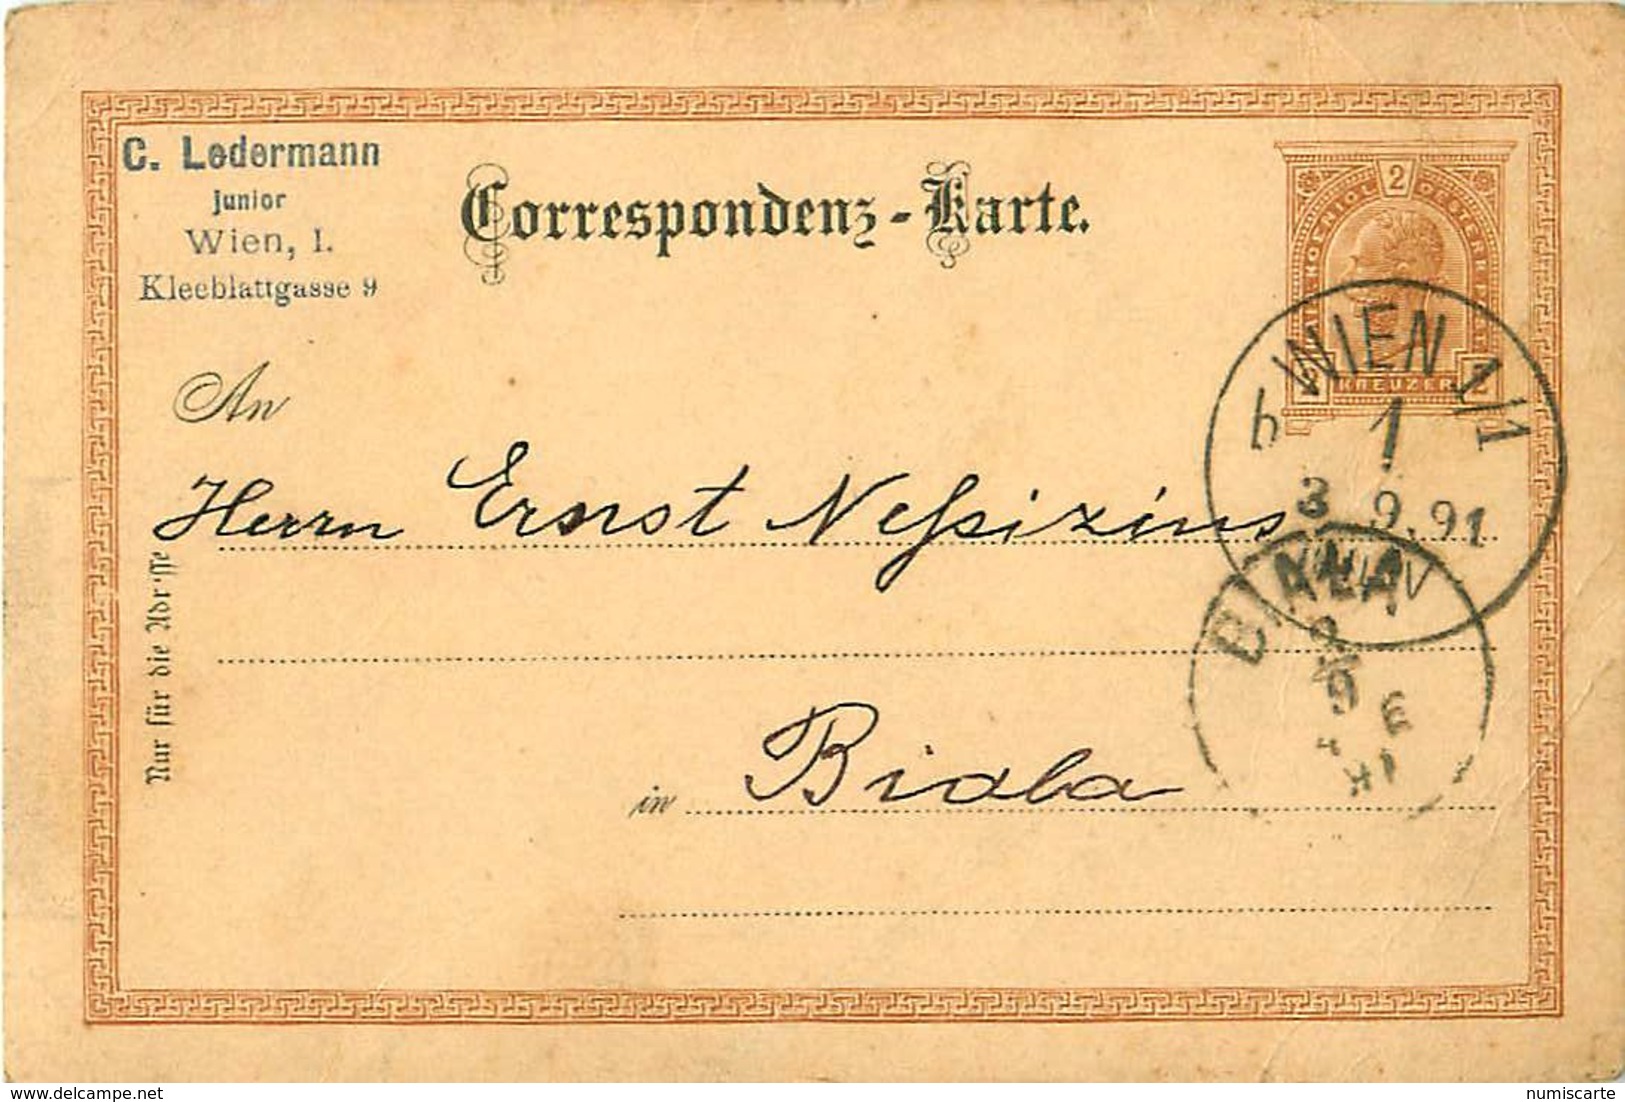 C. Ledermann
junior
Wien, I.
Kleeblattgasse 9
Correspondenz-Karte.
2
KREUZER
An
Herrn Ernst Neßizius
in Biala
Nur für die Adresse
WIEN 1/1
b
1
3 9.91
WIEN
BIAŁA
delcampe.net
numiscarte